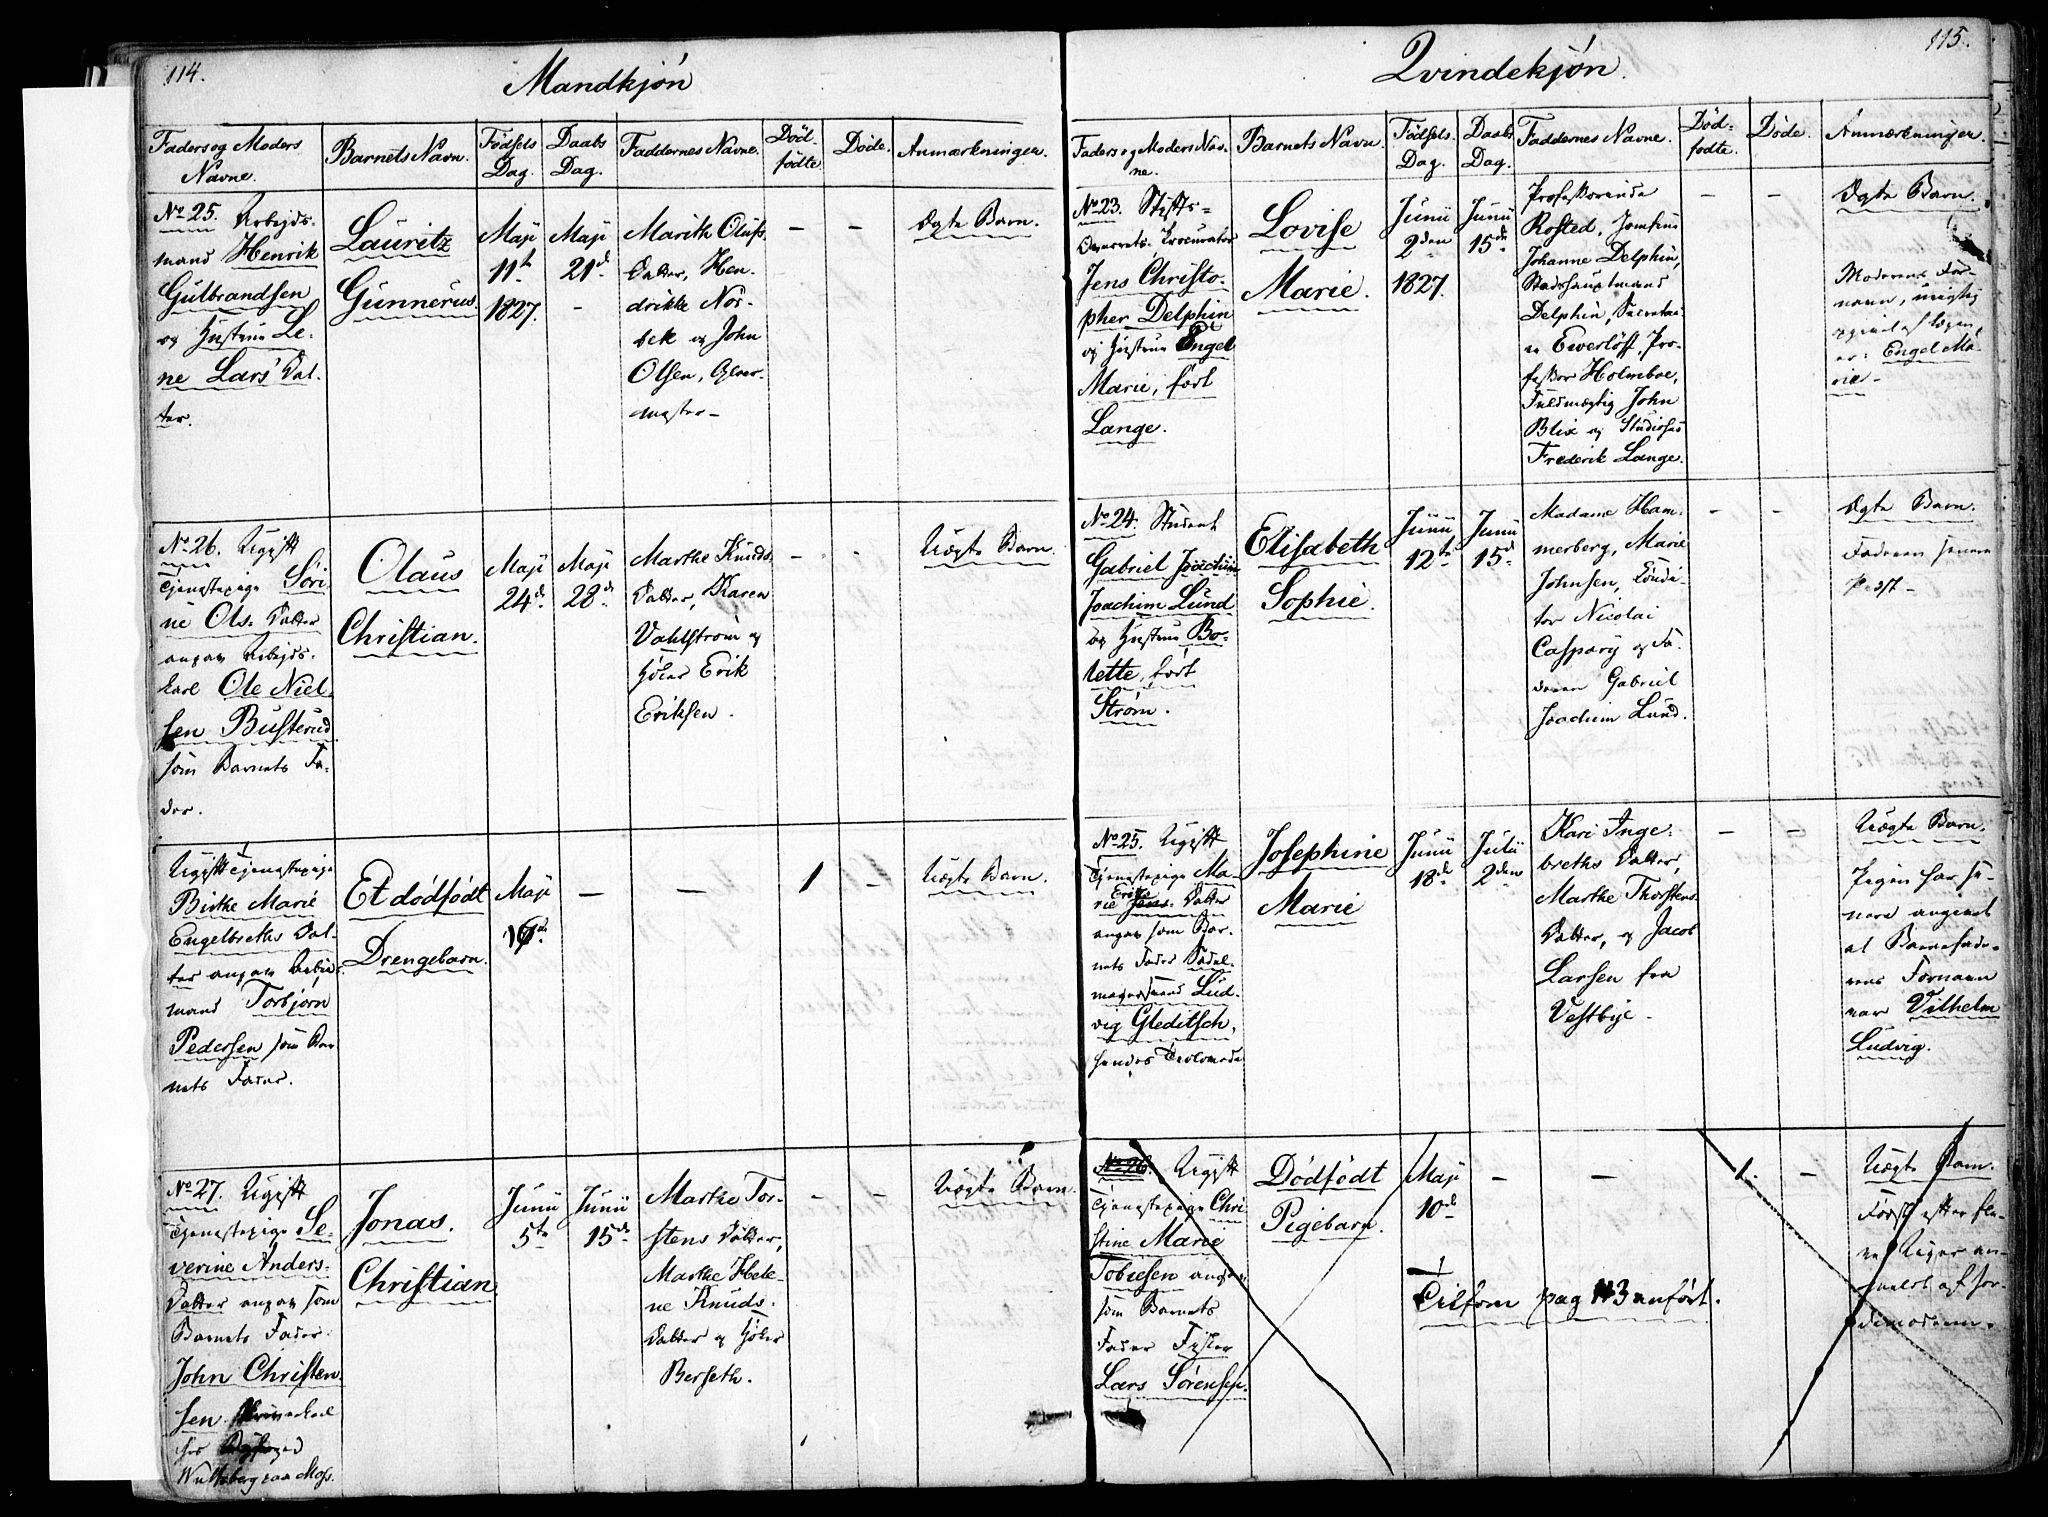 114.
Mandkjön
Faders og Moders Navne.
Barnets Navn.
Födsels Dag.
Daabs Dag.
Faddernes Navne.
Död-födte
Döde.
Anmærkninger.
No 25. Arbejds-
mand Henrik
Gulbrandsen
og Hustrue Le-
ne Lars' Dat-
ter.
Lauritz
Gunnerus.
Maji
11te
1827.
Maji
21de
-
Marthe Oluss.
Datter, Hen-
drikke Nor-
bek og John
Olsen, Glar-
mester -
-
-
Ægte Barn.
No 26. Ugift
Tjenestepige Sori-
ne Ols. Datter
angav Arbejds-
karl Ole Niel-
sen Busterud
som Barnets Fa-
der.
Olaus
Christian.
Maji
24de
Maji
28de
Marthe Knuds.
Datter, Karen
Vahlstrom og
Erik
Eriksen.
-
-
Uægte Barn.
Ugift Tjenestepige
Birthe Marie
Engelbreths Dat-
ter angav Arbejds-
mand Torbjorn
Pedersen, som Bar-
nets Fader.
Et dödfödt
Drengebarn.
Maji
16de
-
-
1
-
Uægte Barn.
No 27. Ugift
Tjenestepige Se-
verine Anders-
Datter angav som
Barnets Fader
John Christen-
sen
hos
Wulfsberg paa Moss.
Jonas.
Christian
Junii
5te
Junii
15de
Marthe Tor-
stens Datter,
Marthe Hele-
ne Knuds.
Datter og
Berseth.
-
-
Uægte Barn.
115.
Qvindekjön.
Faders og Moders Nav-
ne.
Barnets Navn.
Födsels Dag.
Daabs Dag.
Faddernes Navne.
Död-födte
Döde.
Anmærkninger.
No 23. Stifts-
Overrets-Procurator
Jens Christo-
pher Delphin
og Hustrue Engel
Marie, født
Lange.
Lovise
Marie.
Junii
2den
1827.
Junii
15de
Professorinde
Rosted, Jomfrue
Johanne Delphin,
Stadshauptmand
Delphin, Secretai-
re Ewerlöff, Pro-
fessor Holmboe,
Fuldmægtig John
Blix og Studiosus
Frederik Lange.
-
-
Ægte Barn.
Moderens For-
navn, urigtig
er: Engel Ma-
rie -
No 24. Student
Gabriel Joachim
Joachim Lund
og Hustrue Bo-
lette, født
Strøm.
Elisabeth
Sophie.
Junii
12te
Junii
15de
Madame Ham-
merberg, Marie
Johnsen, Condi-
tor Nicolai
Caspary og Fa-
deren Gabriel
Joachim Lund.
-
-
Ægte Barn.
Faderen senere
Præst -
No 25. Ugift
Tjenestepige Ma-
rie Eriks Datter
angav som Bar-
nets Fader Sadel-
magersvend Lud-
vig Gleditsch,
hendes Trolovede
Josephine
Marie
Junii
18de
Julii
2den
Kari Inge-
breths Datter,
Marthe Thorstens
Datter, og Jacob
Larsen fra
Vestbye -
-
-
Uægte Barn.
Pigen har se-
nere angivet
at Barnefade-
rens Fornavn
var Vilhelm
Ludvig.
No 26. Ugift
Tjenestepige Chri-
stine Marie
Tobiesen angav
som Barnets
Fader Fysker
Lars Sørensen.
Dödfödt
Pigebarn.
Maji
10de
-
-
1.
-
Tilforn pag 113 anført.
Uægte Barn.
Først efter fle-
re Uger an-
meldt af Jor-
demoderen.